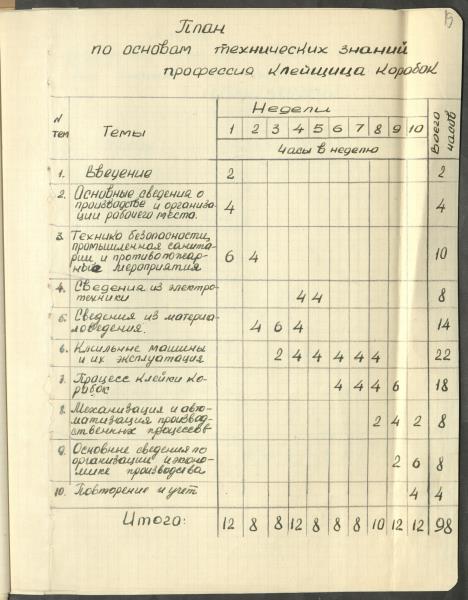 15
План
по основам технических знаний
профессия Клейщица коробок
N тем Темы Недели Всего часов
1 2 3 4 5 6 7 8 9 10
Часы в неделю
1. Введение 2 2
2. Основные сведения о
производстве и организа-
ции рабочего места. 4 4
3. Техника безопасности,
промышленная санита-
рии и противопожар-
ные мероприятия 6 4 10
4. Сведения из электро-
техники 4 4 8
5. Сведения из материа-
ловедения. 4 6 4 14
6. Клеильные машины
и их эксплуатация 2 4 4 4 4 4 22
7. Процесс клейки ко-
робок 4 4 4 6 18
8. Механизация и авто-
матизация производ-
ственных процессов 2 4 2 8
9. Основные сведения по
организации и эконо-
мике производства 2 6 8
10. Повторение и учет 4 4
Итого: 12 8 8 12 8 8 8 10 12 12 98